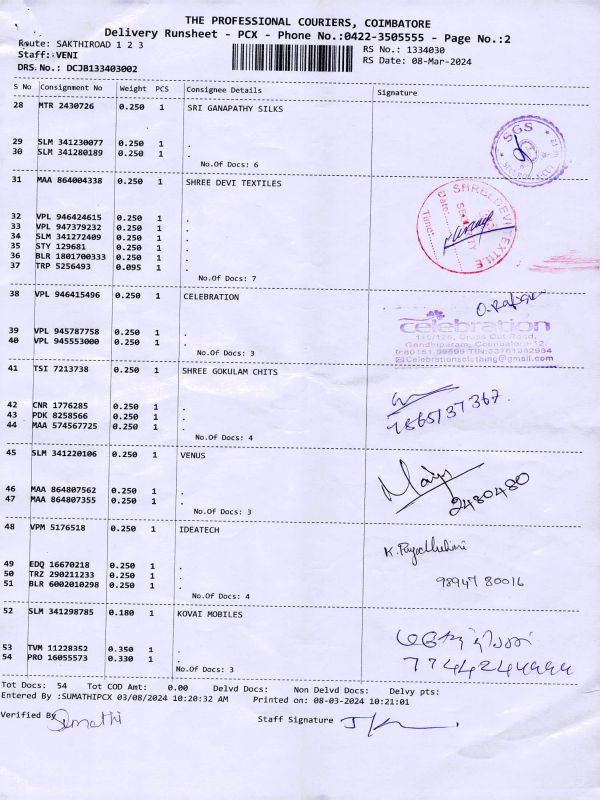 THE PROFESSIONAL COURIERS, COIMBATORE
Delivery Runsheet - PCX - Phone No.:0422-3505555 - Page No.:2
Route: SAKTHIROAD 1 2 3
RS No.: 1334030
Staff: VENI
RS Date: 08-Mar-2024
DRS No.: DCJB133403002
S No Consignment No Weight PCS Consignee Details Signature
28 MTR 2430726 0.250 1 SRI GANAPATHY SILKS
SGS
29 SLM 341230077 0.250 1 .
30 SLM 341280189 0.250 1 .
No.Of Docs: 6
31 MAA 864004338 0.250 1 SHREE DEVI TEXTILES
SHREE DEVI TEXTILE
Date:
Time:
32 VPL 946424615 0.250 1 .
33 VPL 947379232 0.250 1 .
34 SLM 341272409 0.250 1 .
35 STY 129681 0.250 1 .
36 BLR 1801700333 0.250 1 .
37 TRP 5256493 0.095 1 .
No.Of Docs: 7
38 VPL 946415496 0.250 1 CELEBRATION
celebration
Cross Cut Road,
Gandhipuram, Coimbatore-12
Celebrationsclothing@gmail.com
39 VPL 945787758 0.250 1 .
40 VPL 945553000 0.250 1 .
No.Of Docs: 3
41 TSI 7213738 0.250 1 SHREE GOKULAM CHITS
42 CNR 1776285 0.250 1 .
43 PDK 8258566 0.250 1 .
44 MAA 574567725 0.250 1 .
No.Of Docs: 4
45 SLM 341220106 0.250 1 VENUS
2480480
46 MAA 864807562 0.250 1 .
47 MAA 864807355 0.250 1 .
No.Of Docs: 3
48 VPM 5176518 0.250 1 IDEATECH
49 EDQ 16670218 0.250 1 .
50 TRZ 290211233 0.250 1 .
51 BLR 6002010298 0.250 1 .
98947 80016
No.Of Docs: 4
52 SLM 341298785 0.180 1 KOVAI MOBILES
53 TVM 11228352 0.350 1 .
54 PRO 16055573 0.330 1 .
No.Of Docs: 3
Tot Docs: 54 Tot COD Amt: 0.00 Delvd Docs: Non Delvd Docs: Delvy pts:
Entered By :SUMATHIPCX 03/08/2024 10:20:32 AM Printed on: 08-03-2024 10:21:01
Verified By Sumathi Staff Signature